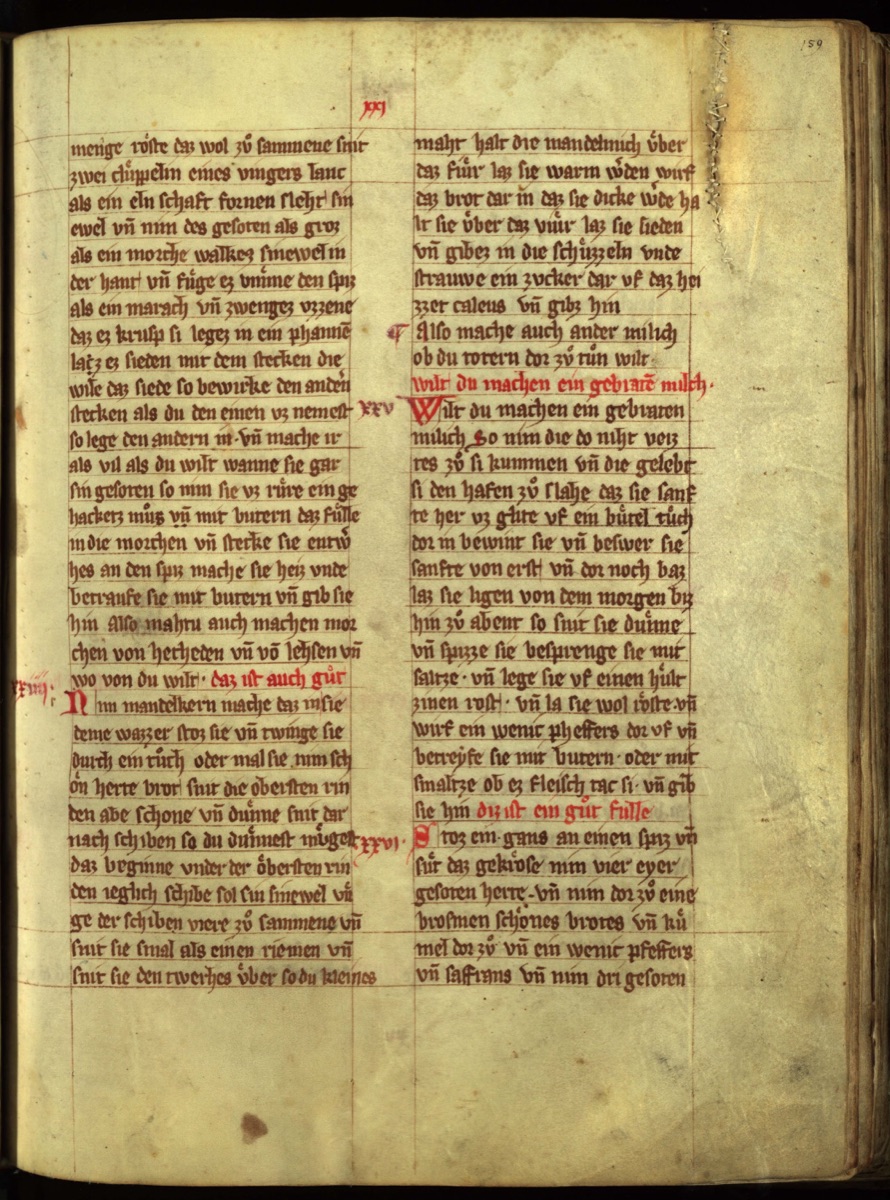 159
xxi
menge röste daz wol zů sammene snit
zwei clůppelin eines vingers lanc
als ein eln schaft fornen sleht sin
ewel vn̄ nim des gesoten als groz
als ein morche walkez sinewel in
der hant vn̄ fůge ez vmme den spiz
als ein marach vn̄ zwengez vzzene
daz ez krusp si legez in ein phannē
laz ez sieden mit dem stecken die
wile daz siede so bewirke den andern
stecken als du den einen vz nemest
so lege den andern in · vn̄ mache ir
als vil als du wilt wanne sie gar
sin gesoten so nim sie vz růre ein ge
hacketz můs vn̄ mit butern daz fůlle
in die morchen vn̄ stecke sie entw̓
hes an den spiz mache sie heiz vnde
betraufe sie mit butern vn̄ gib sie
hin Also mahtu auch machen mor
chen von hecheden vn̄ vō lehsen vn̄
wo von du wilt · daz ist auch gůt
xxiiii ·
Nim mandelkern mache daz in sie
deme wazzer stoz sie vn̄ twinge sie
durch ein tůch oder mal sie nim sch
ön herte brot snit die obersten rin
den abe schone vn̄ důnne snit dar
nach schiben so du důnnest můgest
daz beginne vnder der öbersten rin
den ieglich schibe sol sin sinewel vn̄
ge der schiben viere zů sammene vn̄
snit sie smal als einen riemen vn̄
snit sie den twerhes vͤber so du kleines
maht halt die mandelmich vͤber
daz fůr laz sie warm w̓den wirf
daz brot dar in daz sie dicke w̓de ha
lt sie vͤber daz viůr laz sie sieden
vn̄ gibez in die schůzzeln vnde
strauwe ein zvcker dar vf daz hei
zzet caleus vn̄ gibz hin
¶ Also mache auch ander milich
ob du totern dor zů tůn wilt ·
wilt du machen ein gebratē milch ·
xxv
Wilt du machen ein gebraten
milich So nim die do niht veiz
tes zů si kummen vn̄ die gelebt
si den hafen zů slahe daz sie sanf
te her vz glute vf ein bůtel tůch
dor in bewint sie vn̄ beswer sie
sanfte von erst vn̄ dor noch baz
laz sie ligen von dem morgen biz
hin zů abent so snit sie důnne
vn̄ spizze sie besprenge sie mit
saltze · vn̄ lege sie vf einen hůlt
zinen rost · vn̄ la sie wol röste vn̄
wirf ein wenic pheffers dor vf vn̄
betreyfe sie mit butern · oder mit
smaltze ob ez fleisch tac si · vn̄ gib
sie hin diz ist ein gůt fulle
xxvi ·
Stoz ein · gans an einen spiz vn̄
sůt daz gekröse nim vier eyer
gesoten herte · vn̄ nim dor zů eine
brosmen schönes brotes vn̄ ků
mel dor zů vn̄ ein wenic pfeffers
vn̄ saffrans vn̄ nim dri gesoten